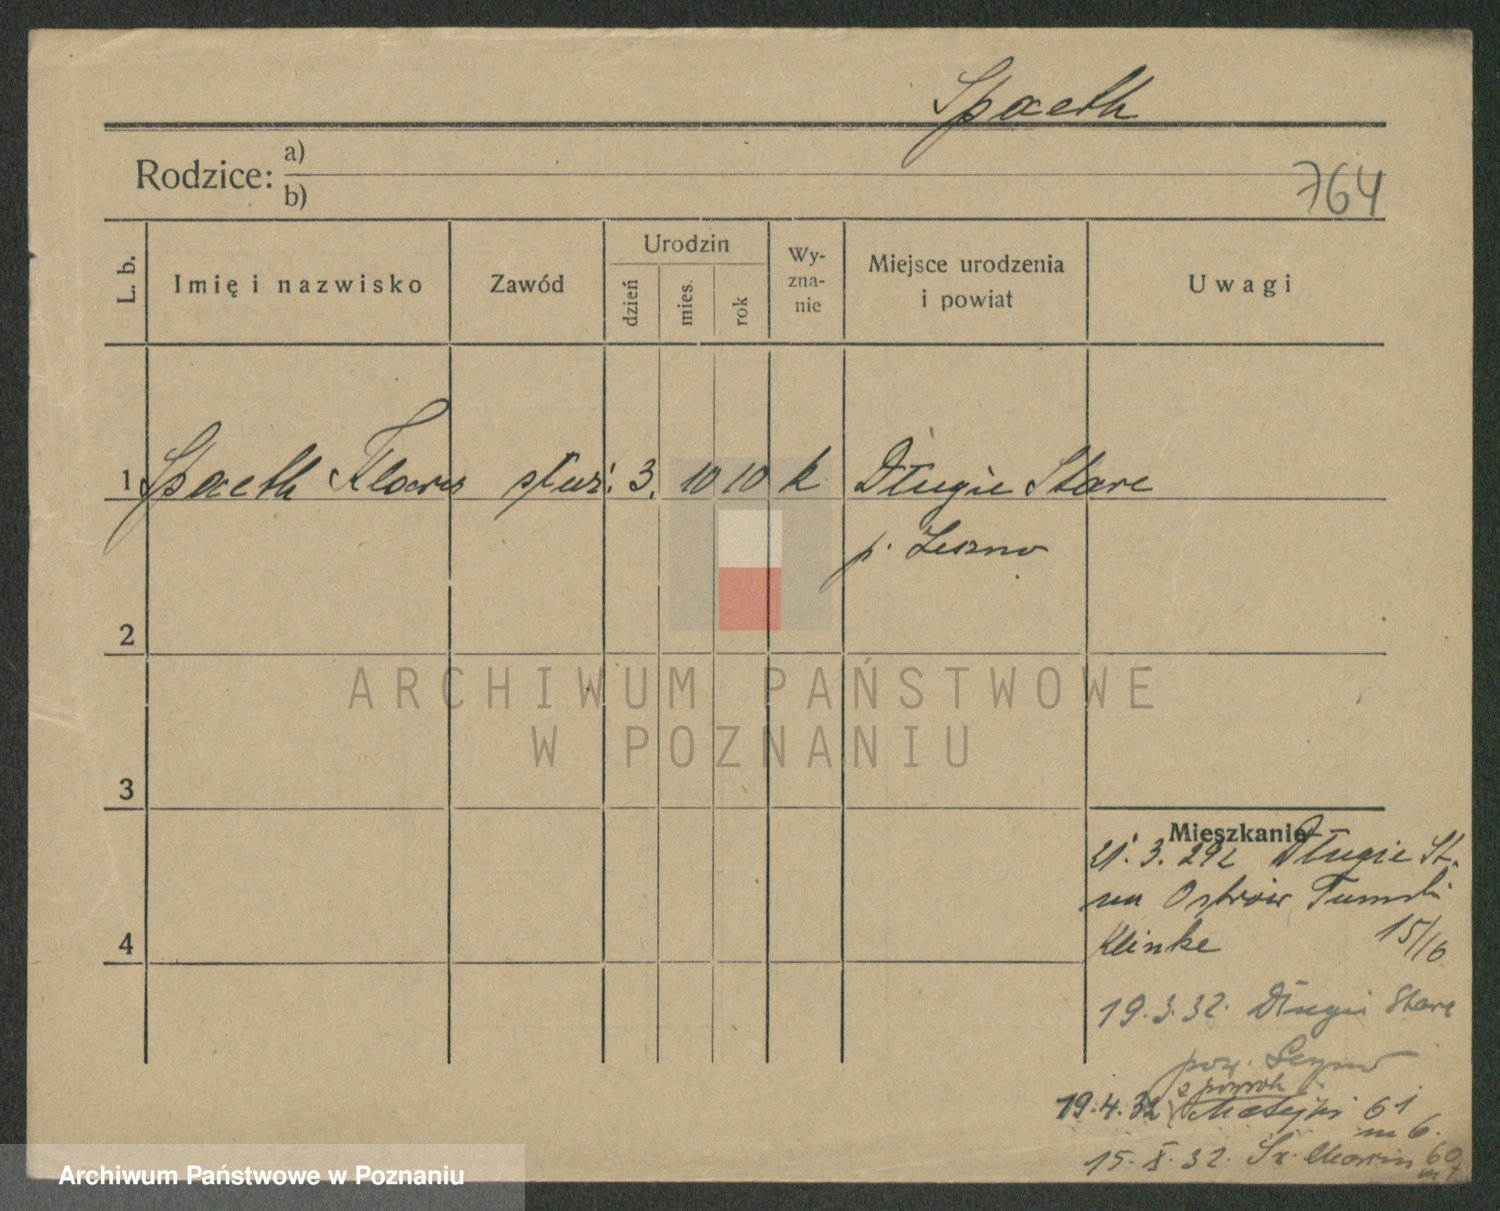 Spaeth
Rodzice: a)
b)
764
L. b.
Imię i nazwisko
Zawód
Urodzin
dzień
mies.
rok
Wy-
zna-
nie
Miejsce urodzenia
i powiat
Uwagi
1 Spaeth Klara służ. 3. 10 10 k Długie Stare
p. Leszno
2
3
4
Mieszkanie
21. 3. 29 z Długie St.
na Ostrów Tumski
Klinke 15/16
19. 3. 32. Długie Stare
pow. Leszno
19. 4. 32 z powrot.
Matejki 61
m 6.
15. X. 32. Św. Marcin 60
ARCHIWUM PAŃSTWOWE
W POZNANIU
Archiwum Państwowe w Poznaniu